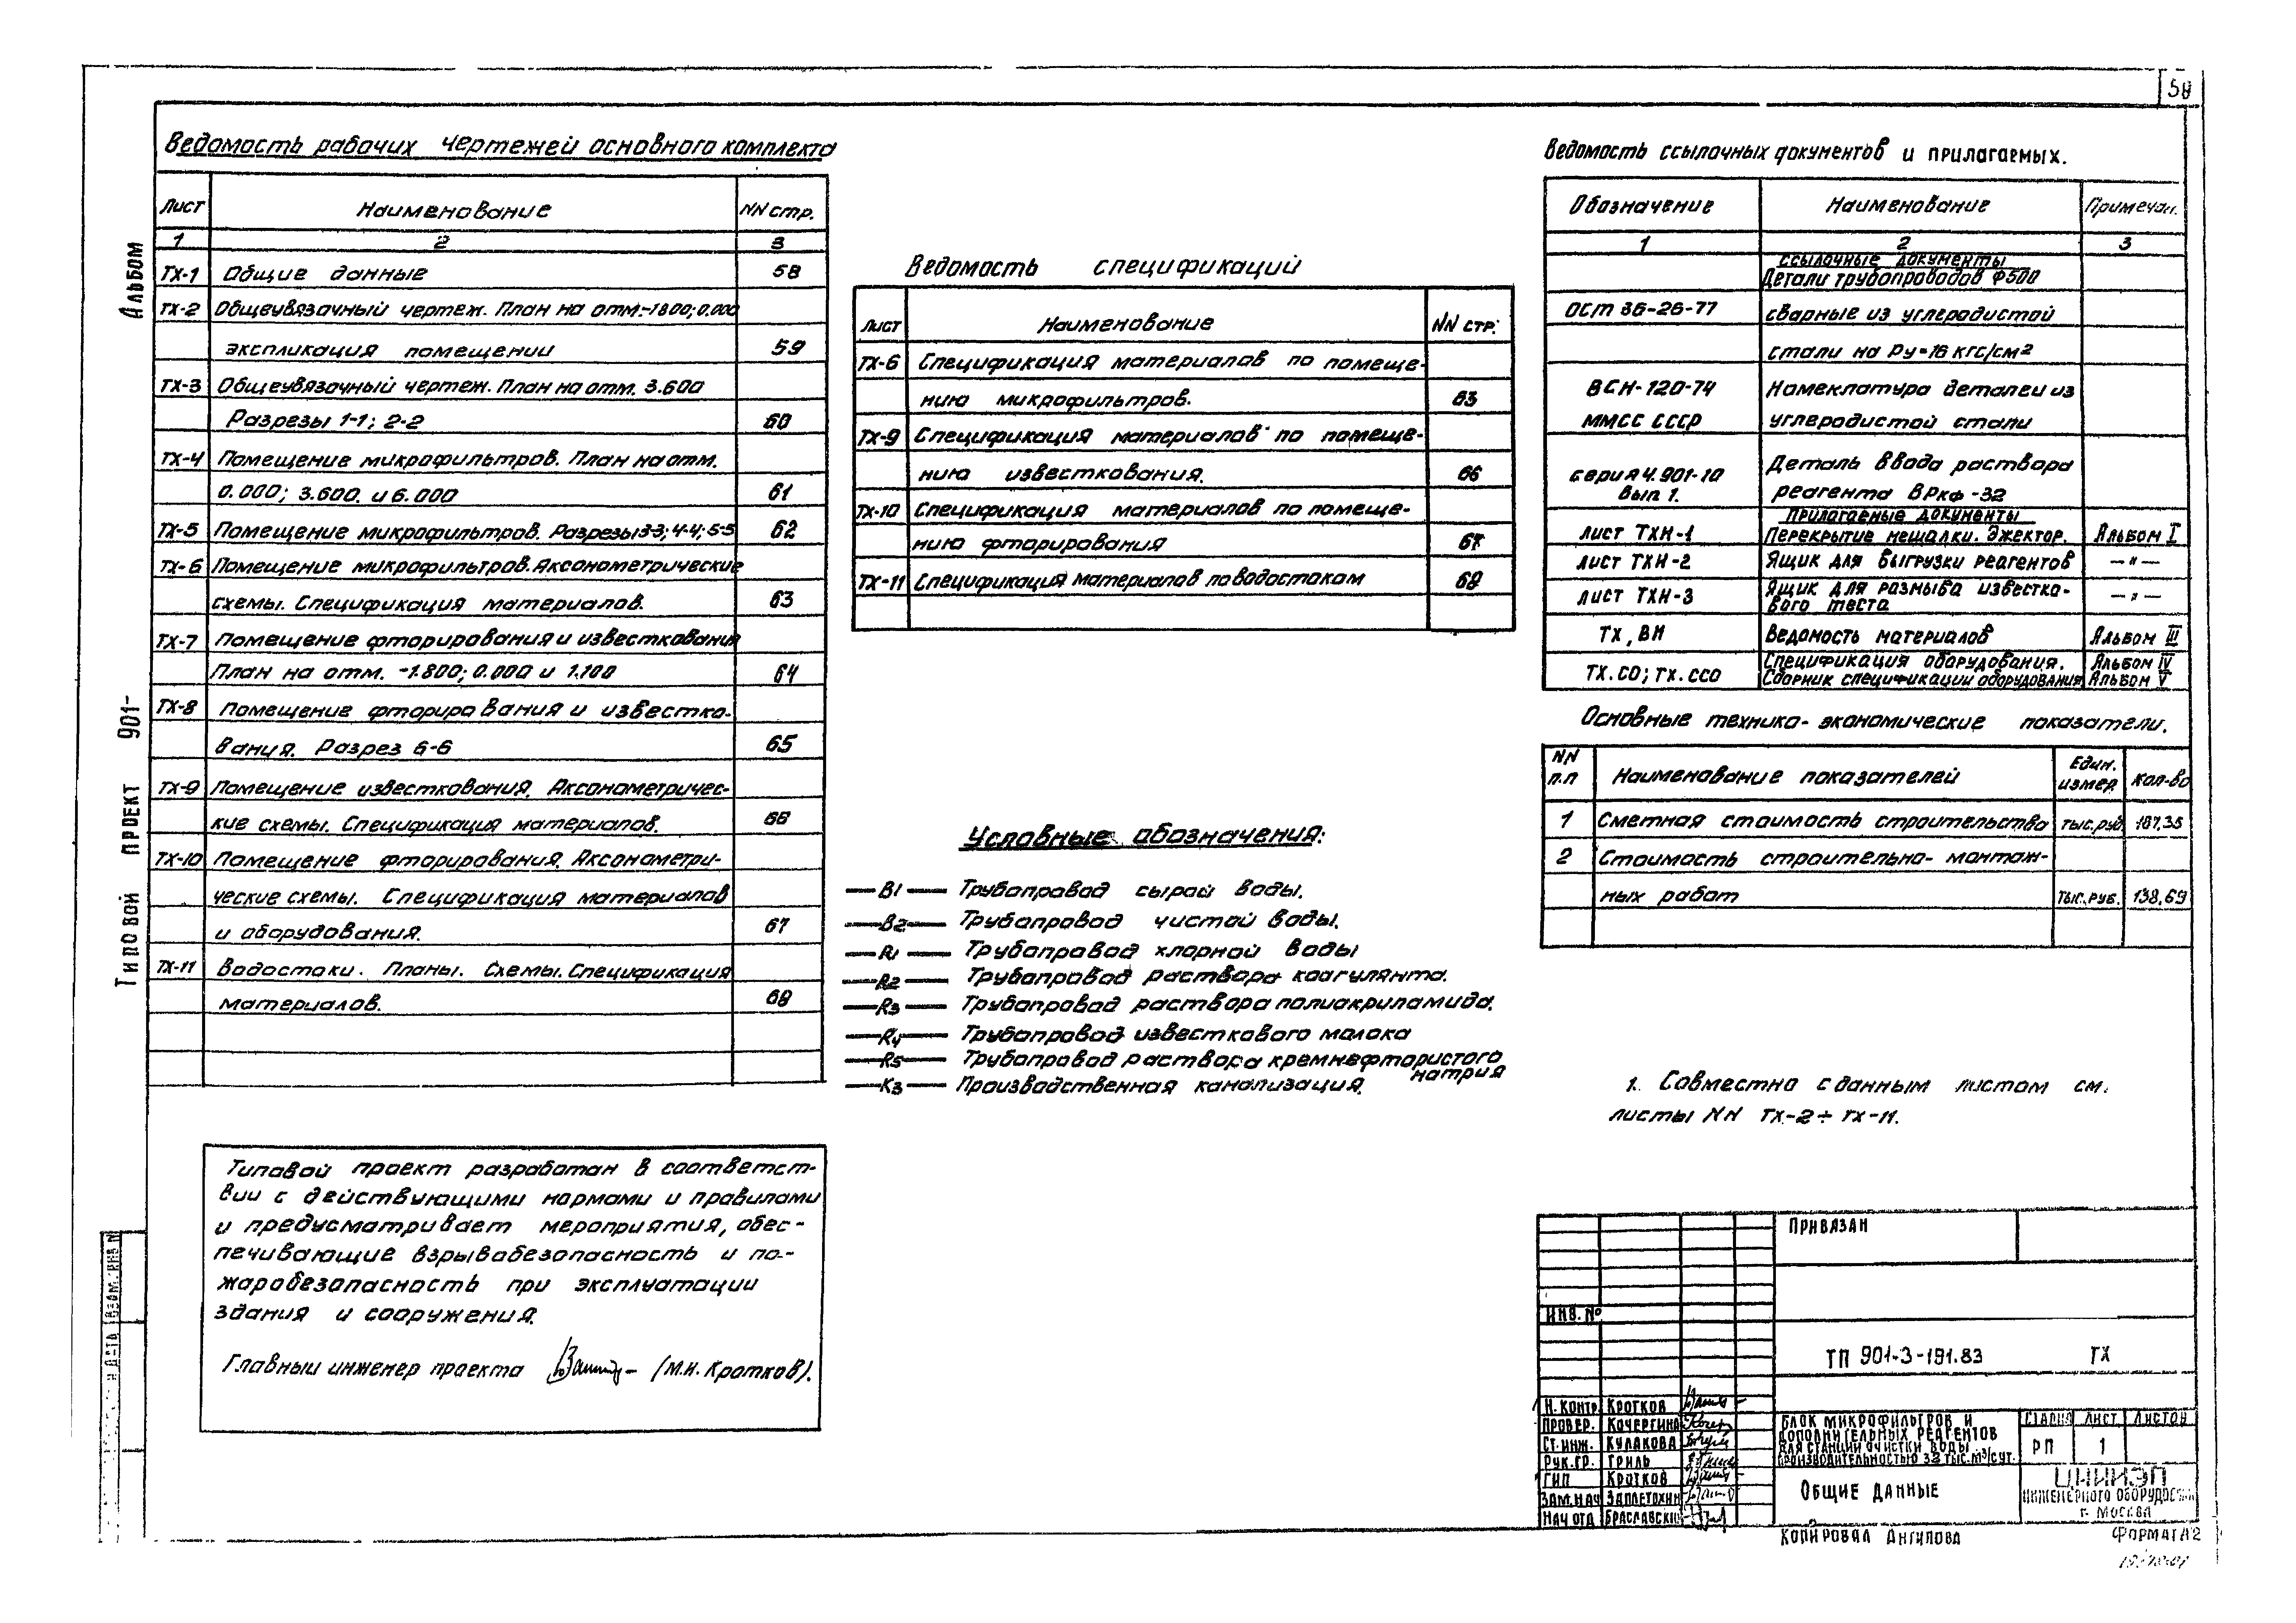 58
Ведомость рабочих чертежей основного комплекта
Лист Наименование NN стр.
1 2 3
ТХ-1 Общие данные 58
ТХ-2 Общеувязочный чертеж. План на отм.-1800; 0.000
экспликация помещений 59
ТХ-3 Общеувязочный чертеж. План на отм. 3.600
Разрезы 1-1; 2-2 60
ТХ-4 Помещение микрофильтров. План на отм.
0.000; 3.600. и 6.000 61
ТХ-5 Помещение микрофильтров. Разрезы 3-3; 4-4; 5-5 62
ТХ-6 Помещение микрофильтров. Аксонометрические
схемы. Спецификация материалов. 63
ТХ-7 Помещение фторирования и известкования
План на отм. -1.800; 0.000 и 1.100 64
ТХ-8 Помещение фторирования и известко-
вания. Разрез 6-6 65
ТХ-9 Помещение известкования. Аксонометричес-
кие схемы. Спецификация материалов. 66
ТХ-10 Помещение фторирования. Аксонометри-
ческие схемы. Спецификация материалов
и оборудования. 67
ТХ-11 Водостоки. Планы. Схемы. Спецификация
материалов. 68
Типовой проект разработан в соответст-
вии с действующими нормами и правилами
и предусматривает мероприятия, обес-
печивающие взрывобезопасность и по-
жаробезопасность при эксплуатации
здания и сооружения.
Главный инженер проекта (М.Н. Кротков).
Ведомость спецификаций
Лист Наименование NN стр.
ТХ-6 Спецификация материалов по помеще-
нию микрофильтров. 63
ТХ-9 Спецификация материалов по помеще-
нию известкования. 66
ТХ-10 Спецификация материалов по помеще-
нию фторирования 67
ТХ-11 Спецификация материалов по водостокам 68
Условные обозначения:
—В1— Трубопровод сырой воды.
—В2— Трубопровод чистой воды.
—R1— Трубопровод хлорной воды
—R2— Трубопровод раствора коагулянта.
—R3— Трубопровод раствора полиакриламида.
—R4— Трубопровод известкового молока
—R5— Трубопровод раствора кремнефтористого
натрия
—К3— Производственная канализация.
Ведомость ссылочных документов и прилагаемых.
Обозначение Наименование Примечан.
1 2 3
Ссылочные документы
Детали трубопроводов Ф500
ОСТ 36-26-77 сварные из углеродистой
стали на Ру=16 кгс/см²
ВСН-120-74 Номеклатура деталей из
ММСС СССР углеродистой стали
серия 4.901-10 Деталь ввода раствора
вып 1. реагента ВРкф-32
Прилагаемые документы
лист ТХН-1 Перекрытие мешалки. Эжектор. Альбом I
лист ТХН-2 Ящик для выгрузки реагентов —"—
лист ТХН-3 Ящик для размыва известко-
вого теста —"—
ТХ, ВМ Ведомость материалов Альбом III
Спецификация оборудования. Альбом IV
ТХ.СО; ТХ.ССО Сборник спецификации оборудования Альбом V
Основные технико-экономические показатели.
NN п.п Наименование показателей Един. измер Кол-во
1 Сметная стоимость строительства тыс.руб 187,35
2 Стоимость строительно-монтаж-
ных работ тыс.руб. 138,69
1. Совместно с данным листом см.
листы NN ТХ-2÷ТХ-11.
Альбом
Типовой проект 901-
Взам. инв. N
Привязан
Инв. №
ТП 901-3-191.83 ТХ
Н. контр. Кротков
Провер. Кочергина
Ст. инж. Кулакова
Рук. гр. Гриль
ГИП Кротков
Зам. нач Заплетохин
Нач отд Браславский
Блок микрофильтров и
дополнительных реагентов
для станции очистки воды
производительностью 32 тыс.м³/сут.
Общие данные
Стадия Лист Листов
РП 1
ЦНИИЭП
инженерного оборудован
г. Москва
Копировал Ангилова Формат А2